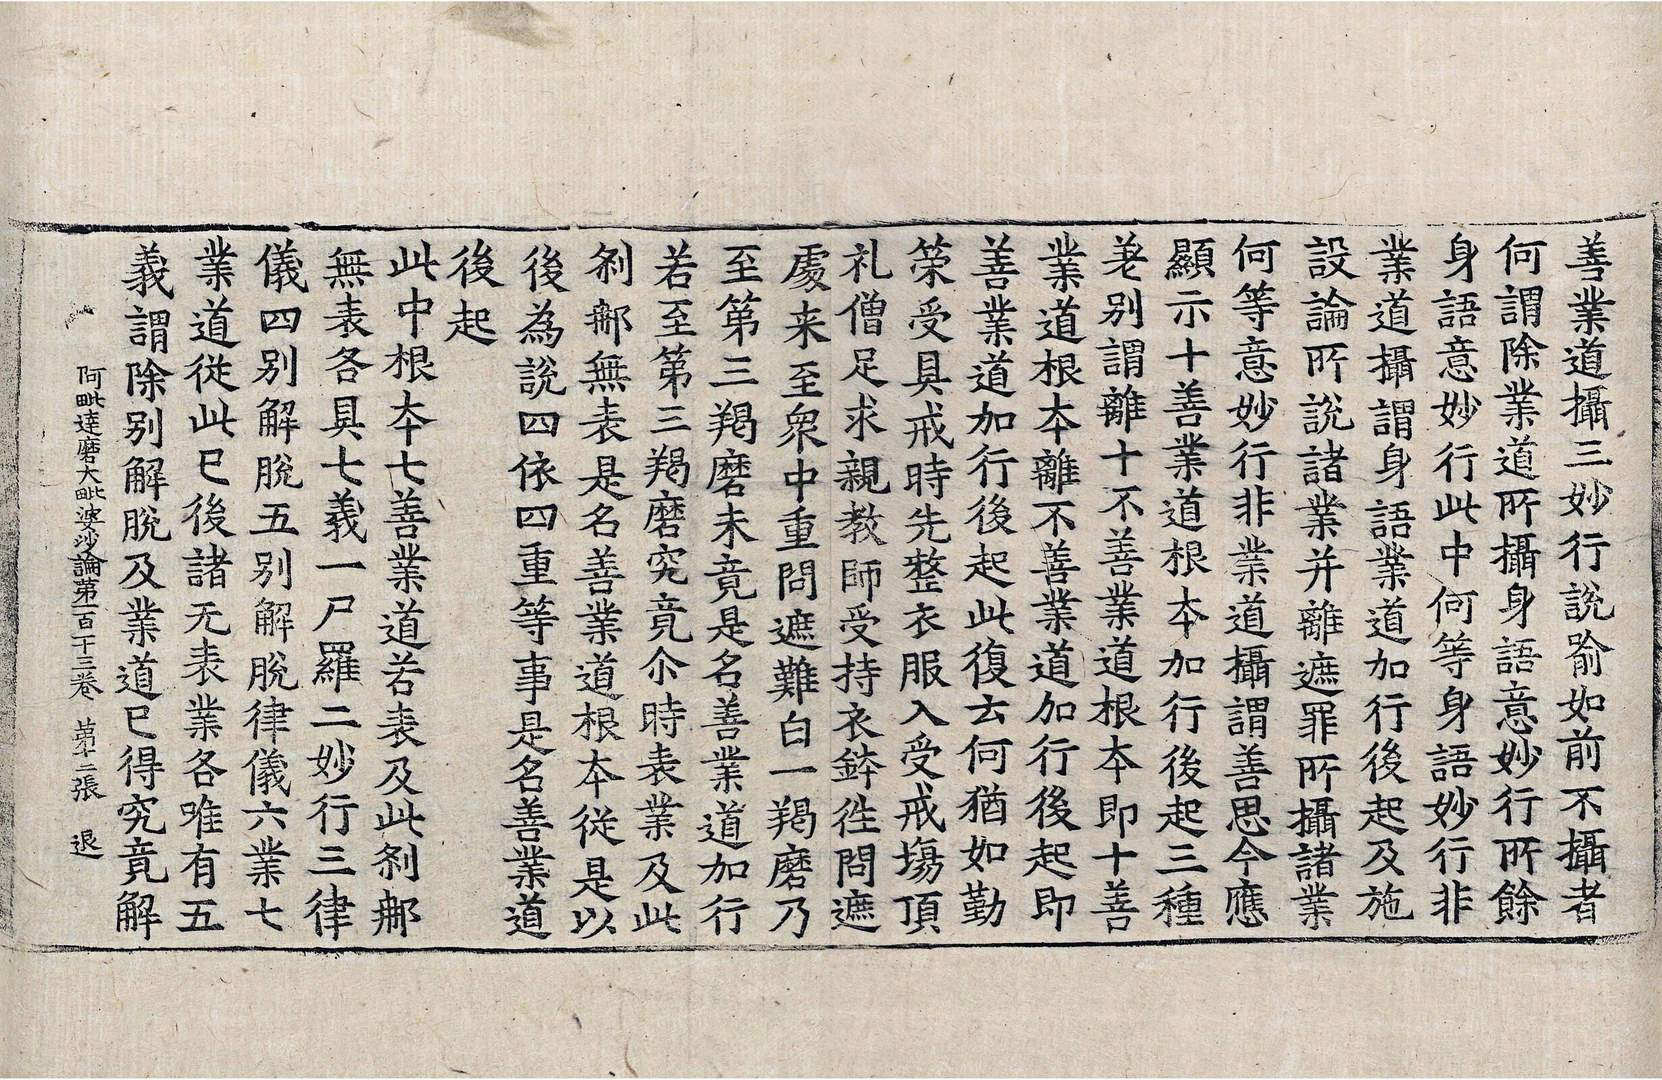 善業道攝三妙行說喻如前不攝者
何謂除業道所攝身語意妙行所餘
身語意妙行此中何等身語妙行非
業道攝謂身語業道加行後起及施
設論所說諸業并離遮罪所攝諸業
何等意妙行非業道攝謂善思今應
顯示十善業道根本加行後起三種
差別謂離十不善業道根本即十善
業道根本離不善業道加行後起即
善業道加行後起此復云何猶如勤
策受具戒時先整衣服入受戒塲頂
礼僧足求親教師受持衣鉢徃問遮
處来至衆中重問遮難白一羯磨乃
至第三羯磨未竟是名善業道加行
若至第三羯磨究竟尒時表業及此
刹𨚗無表是名善業道根本從是以
後為說四依四重等事是名善業道
後起
此中根本七善業道若表及此刹𨚗
無表各具七義一尸羅二妙行三律
儀四別解脫五別解脫律儀六業七
業道從此已後諸无表業各唯有五
義謂除別解脫及業道已得究竟解
阿毗達磨大毗婆沙論第一百十三卷 第十二張 退